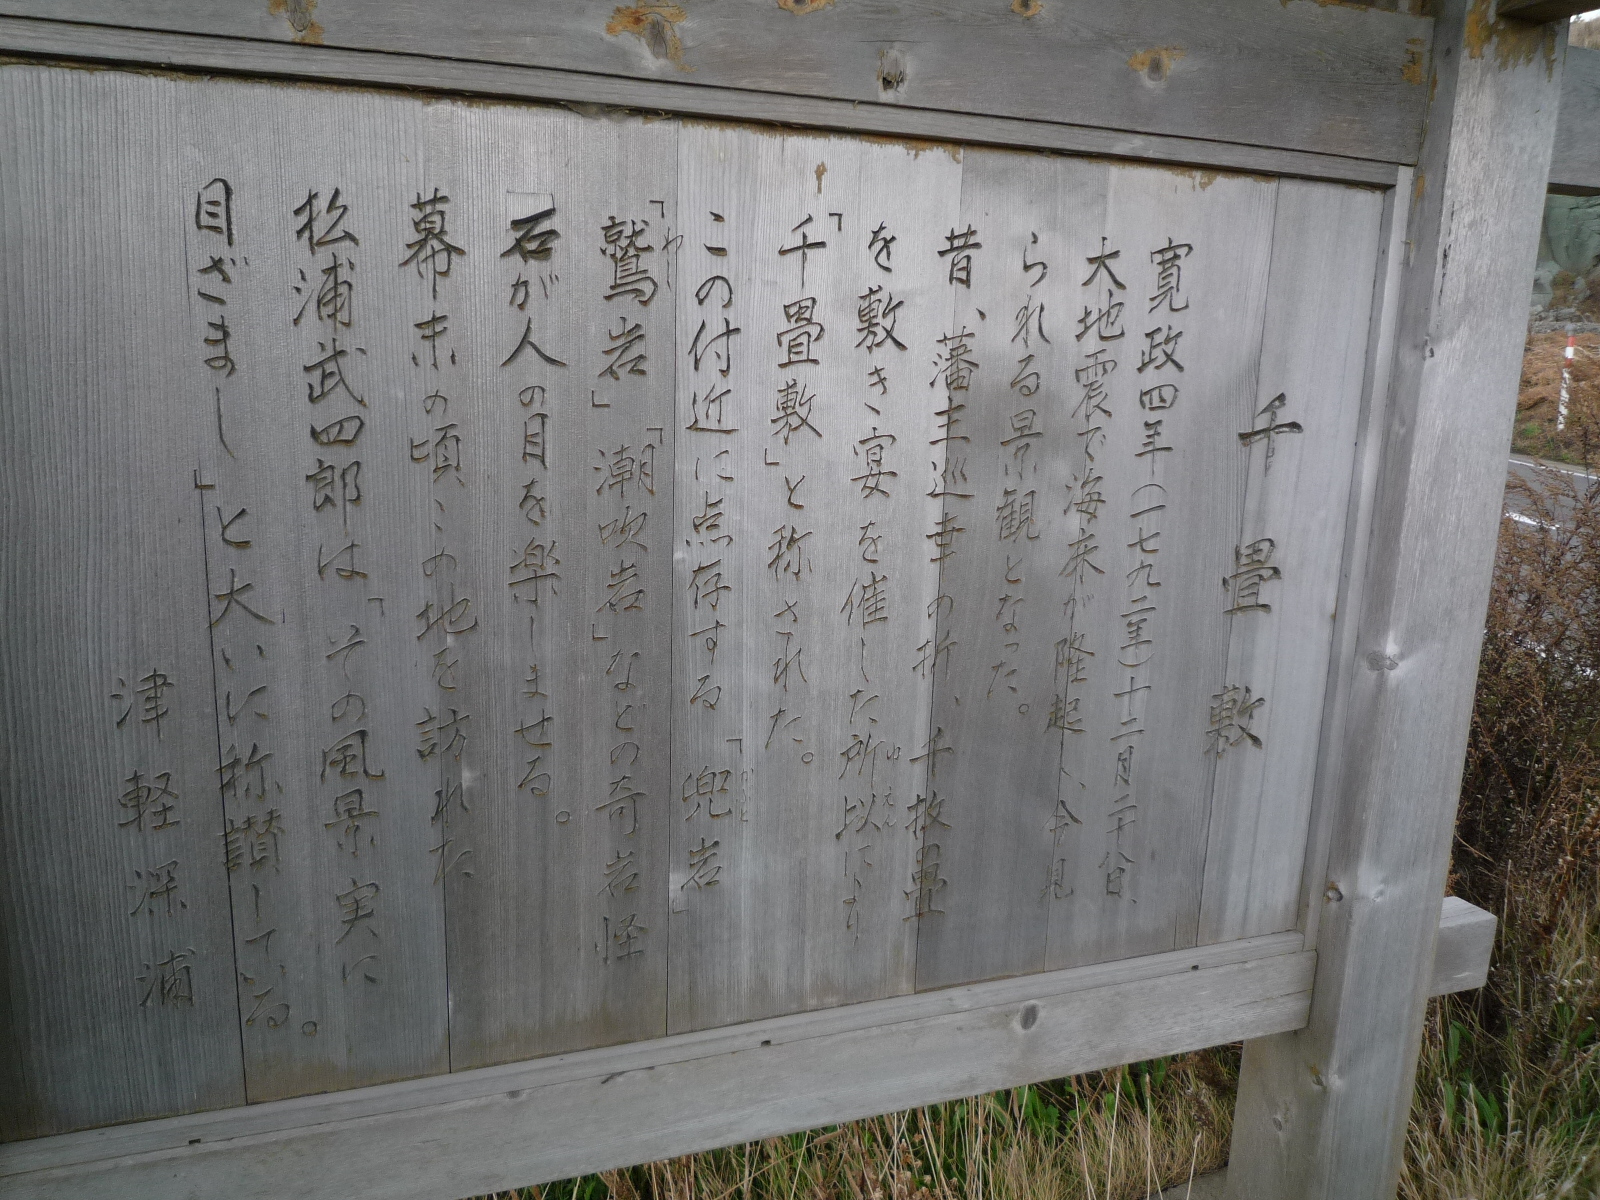 千畳敷
寛政四年（一七九二年）十二月二十八日、
大地震で海床が隆起し、今見
られる景観となった。
昔、藩主巡幸の折、千枚畳
を敷き宴を催した所以により
ゆえん
「千畳敷」と称された。
この付近に点存する「兜岩」
かぶと
「鷲岩」「潮吹岩」などの奇岩怪
わし
石が人の目を楽しませる。
幕末の頃この地を訪れた
松浦武四郎は「その風景実に
目ざまし」と大いに称讃している。
津軽深浦